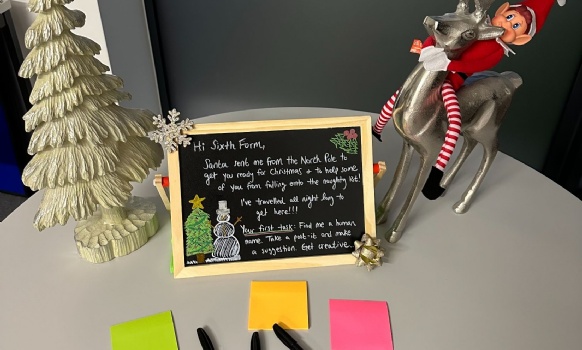 Hi Sixth Form,
Santa sent me from the North Pole to
get you ready for Christmas & to help some
of you from falling onto the naughty list!
I've travelled all night long to
get here!!!
Your first task: Find me a human
name. Take a post-it and make
a suggestion. Get creative...